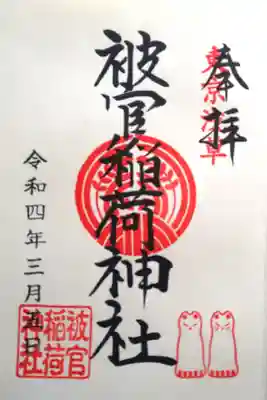 奉拝
東京浅草
被官稲荷神社
令和四年三月 日
被官
稲荷
神社